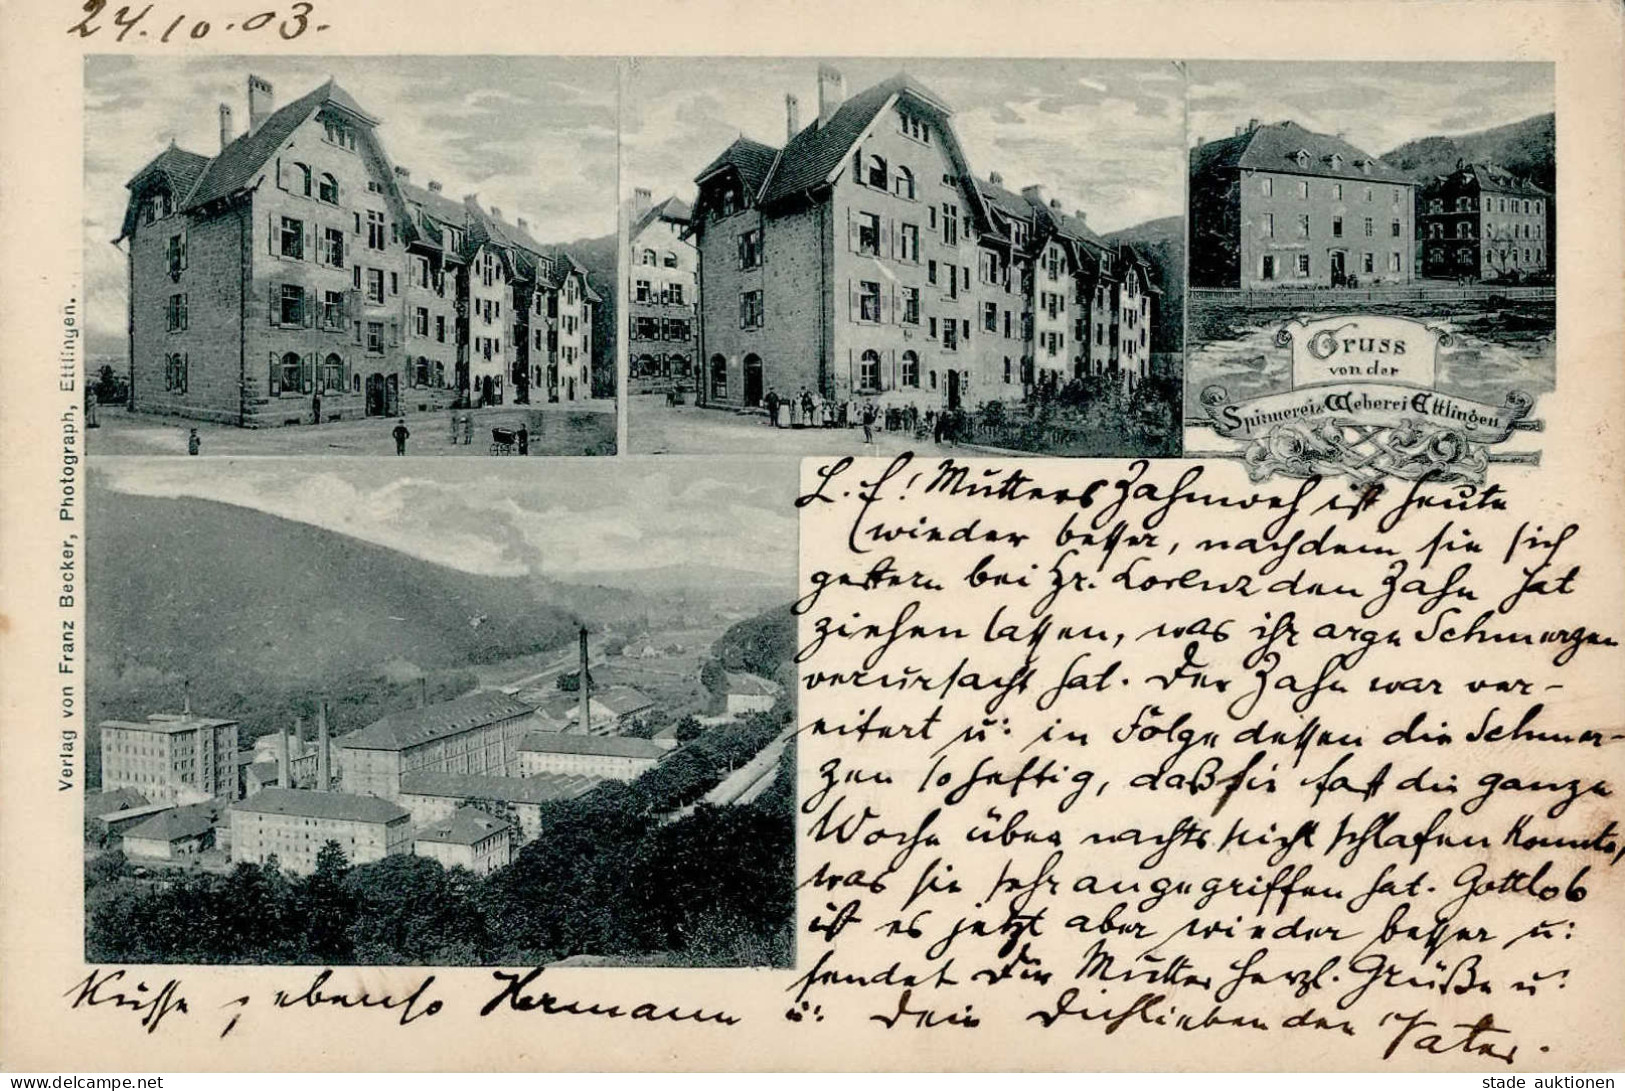 24.10.03.
Verlag von Franz Becker, Photograph, Ettlingen.
Gruss
von der
Spinnerei & Weberei Ettlingen
L. E! Mutters Zahnweh ist heute
wieder besser, nachdem sie sich
gestern bei Hr. Lorenz den Zahn hat
ziehen lassen, was ihr arge Schmerzen
verursacht hat. Der Zahn war ver-
eitert u: in Folge dessen die Schmer-
zen so heftig, daß sie fast die ganze
Woche über nachts nicht schlafen konnte,
was sie sehr angegriffen hat. Gottlob
ist es jetzt aber wieder besser u:
sendet Dir Mutter herzl. Grüße u:
Küsse, ebenso Hermann u: Dein Dichliebenden Vater.
stade auktionen
Delcampe.net